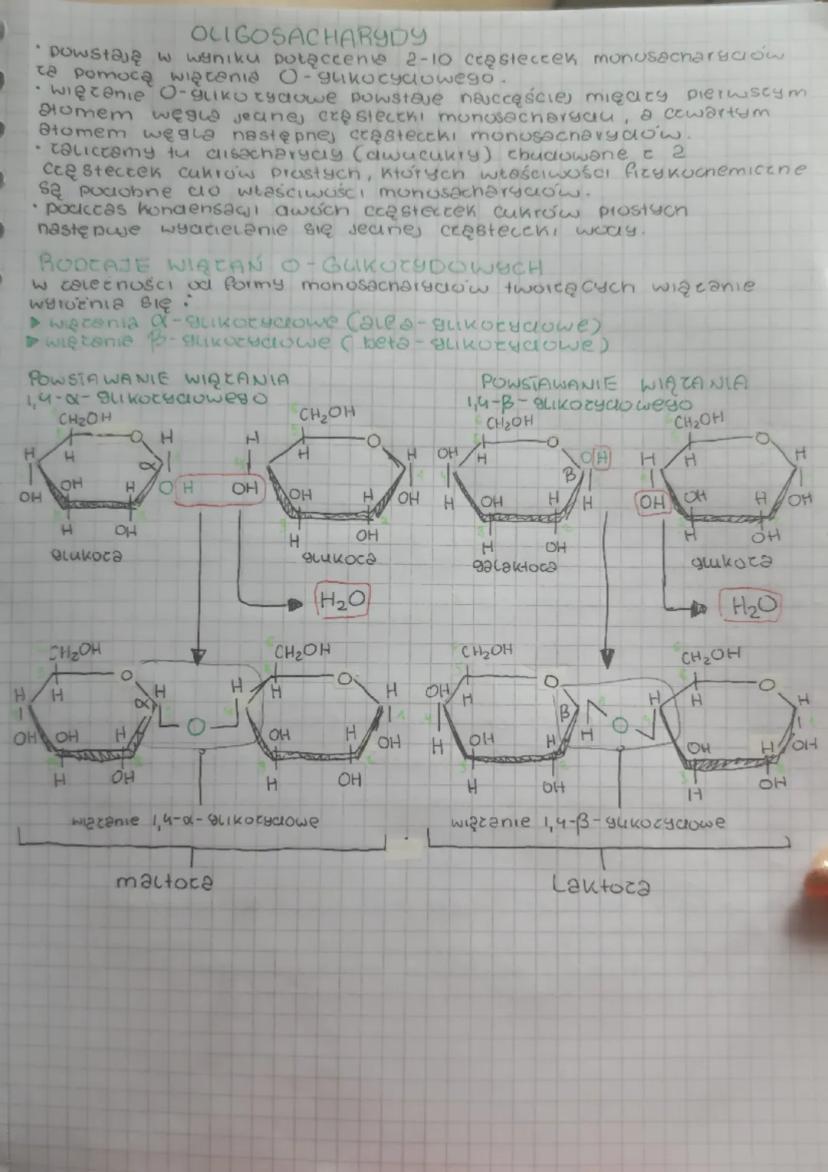 OLIGOSACHARYDY
• powstają w wyniku połączenia 2-10 cząsteczek monosacharydów
za pomocą wiązania O-glikozydowego.
• wiązanie O-glikozydowe powstaje najczęściej między pierwszym
atomem węgla jednej cząsteczki monosacharydu, a czwartym
atomem węgla następnej cząsteczki monosacharydów.
• zaliczamy tu disacharydy (dwucukry) zbudowane z 2
cząsteczek cukrów prostych, których właściwości fizykochemiczne
są podobne do właściwości monosacharydów.
• podczas kondensacji dwóch cząsteczek cukrów prostych
następuje wydzielanie się jednej cząsteczki wody.
RODZAJE WIĄZAŃ O-GLIKOZYDOWYCH
w zależności od formy monosacharydów tworzących wiązanie
wyróżnia się:
▶ wiązania α-glikozydowe (alfa-glikozydowe)
▶ wiązanie β-glikozydowe (beta-glikozydowe)
POWSTAWANIE WIĄZANIA
1,4-α-glikozydowego
POWSTAWANIE WIĄZANIA
1,4-β-glikozydowego
CH₂OH CH₂OH CH₂OH CH₂OH
O H H O OH O O
H H α H H H H OH H H H H
β
OH OH H O H OH OH H OH H OH H H OH OH H OH
H OH H OH H OH H OH
glukoza glukoza galaktoza glukoza
H₂O H₂O
CH₂OH CH₂OH CH₂OH CH₂OH
O O O O
H H α H H H H OH H β H H H H
OH OH H O OH H OH H OH H H O OH H OH
H OH H OH H OH H OH
wiązanie 1,4-α-glikozydowe wiązanie 1,4-β-glikozydowe
maltoza Laktoza